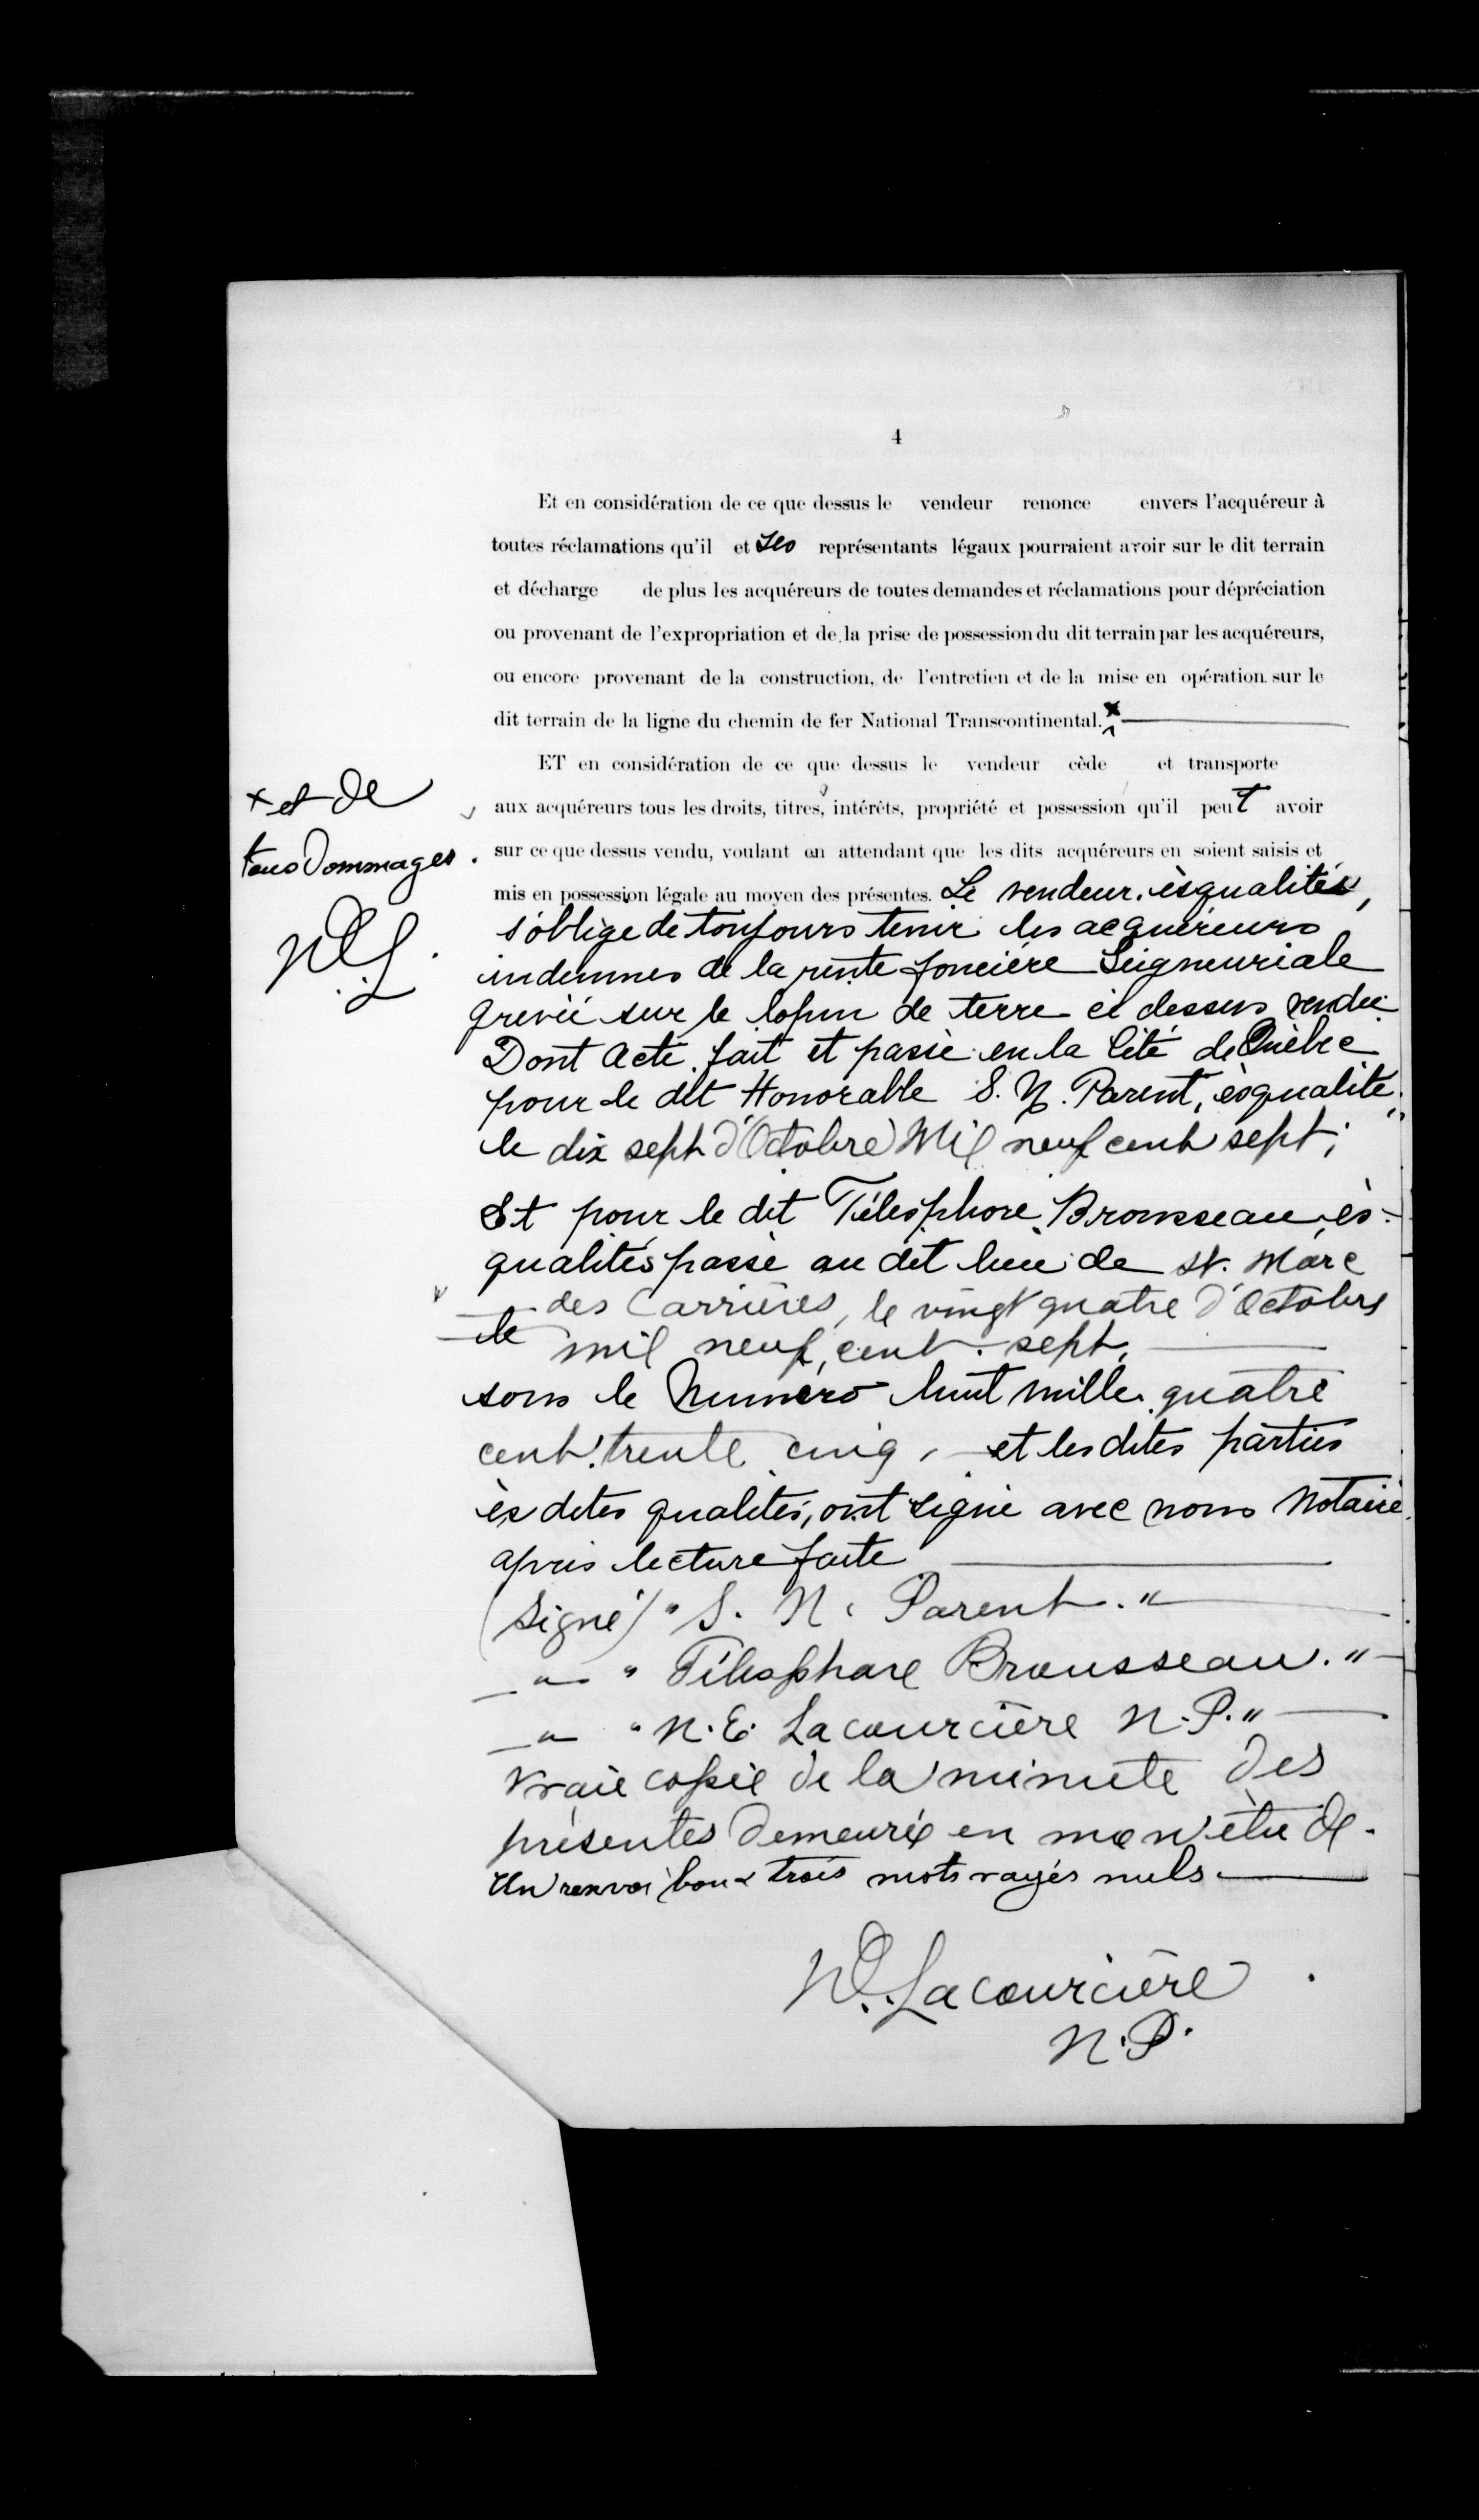 4
Et en considération de ce que dessus le vendeur renonce envers l'acquéreur à
toutes réclamations qu'il et ses représentants légaux pourraient avoir sur le dit terrain
et décharge de plus les acquéreurs de toutes demandes et réclamations pour dépréciation
ou provenant de l'expropriation et de la prise de possession du dit terrain par les acquéreurs,
ou encore provenant de la construction, de l'entretien et de la mise en opération sur le
dit terrain de la ligne du chemin de fer National Transcontinental. x
ET en considération de ce que dessus le vendeur cède et transporte
x et de
aux acquéreurs tous les droits, titres, intérêts, propriété et possession qu'il peut avoir
tous dommages.
sur ce que dessus vendu, voulant en attendant que les dits acquéreurs en soient saisis et
mis en possession légale au moyen des présentes. Le vendeur èsqualités,
s'oblige de toujours tenir les acquéreurs
indemnes de la rente foncière Seigneuriale
grevée sur le lopin de terre ci dessus vendu.
Dont acte, fait et passé en la Cité de Québec
pour le dit Honorable S. N. Parent, èsqualité,
le dix sept d'Octobre Mil neuf cent sept;
Et pour le dit Télesphore Brousseau ès-
qualités passé au dit lieu de St. Marc
des Carrières, le vingt quatre d'Octobre
le mil neuf cent sept,
sous le Numéro huit mille quatre
cent trente cinq, et les dites parties
ès dites qualités, ont signé avec nous Notaire
après lecture faite
(Signé) "S. N. Parent."
" "Télesphore Brousseau."
" "N. E. Lacourcière N.P."
Vraie copie de la minute des
présentes demeurée en mon étude.
Un renvoi bon & trois mots rayés nuls.
N.E. Lacourcière
N.P.